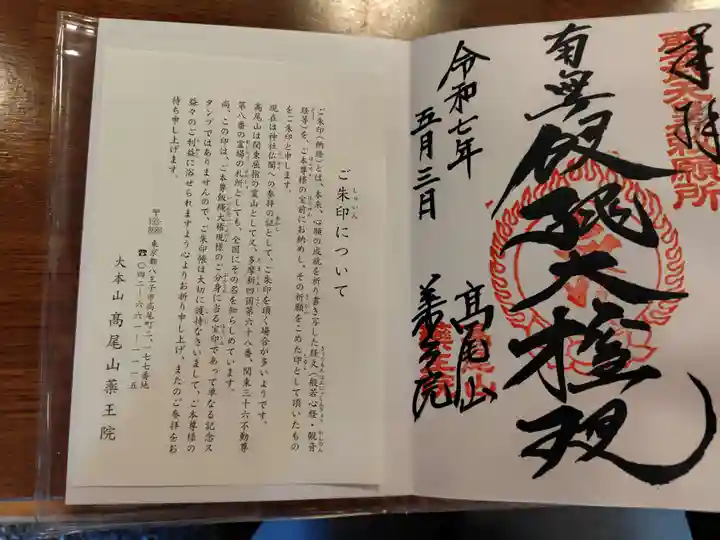 奉拝
南無飯縄大権現
令和七年
五月三日
高尾山
薬王院
ご朱印について
ご朱印(納経)とは、本来、心願の成就を祈り書き写した経文(般若心経・観音
経等)を、ご本尊様の宝前にお納めし、その祈願をこめた印として頂いたもの
をご朱印と申します。
現在は神社仏閣への参拝の証として、ご朱印を頂く場合が多いようです。
高尾山は関東屈指の霊山として又、多摩新四国第六十八番、関東三十六不動尊
第八番の霊場の札所としても、全国にその名を知らしめています。
尚、この印は、ご本尊飯縄大権現様のご分身に当る宝印であって単なる記念ス
タンプではありませんので、ご朱印帳は大切に護持なさいまして、ご本尊様の
益々のご利益に浴せられますよう心よりお祈り申し上げ、またのご参拝をお
待ち申し上げます。
東京都八王子市高尾町二一七七番地
☎〇四二-六六一-一一一五
大本山 髙尾山薬王院